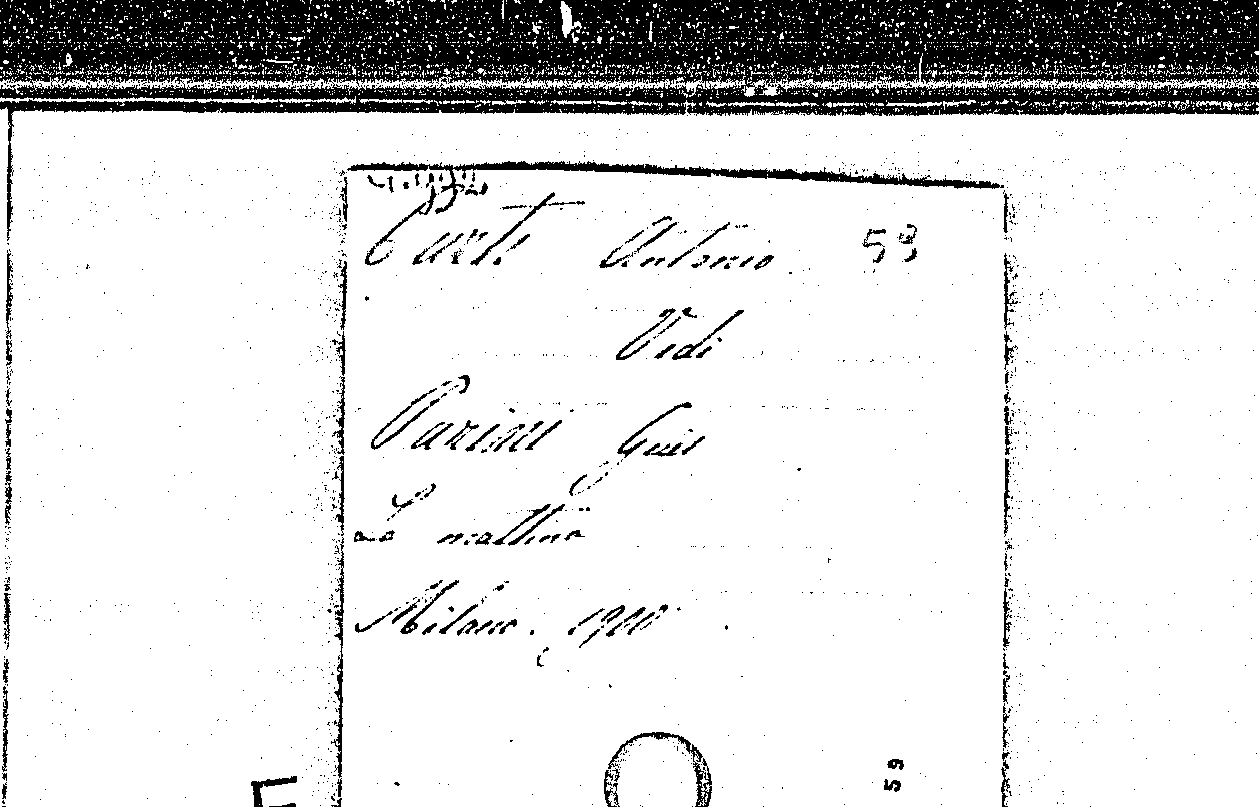 Curti Antonio 59
Vedi
Parini Gius
La mattina
Milano. 1900
59
E